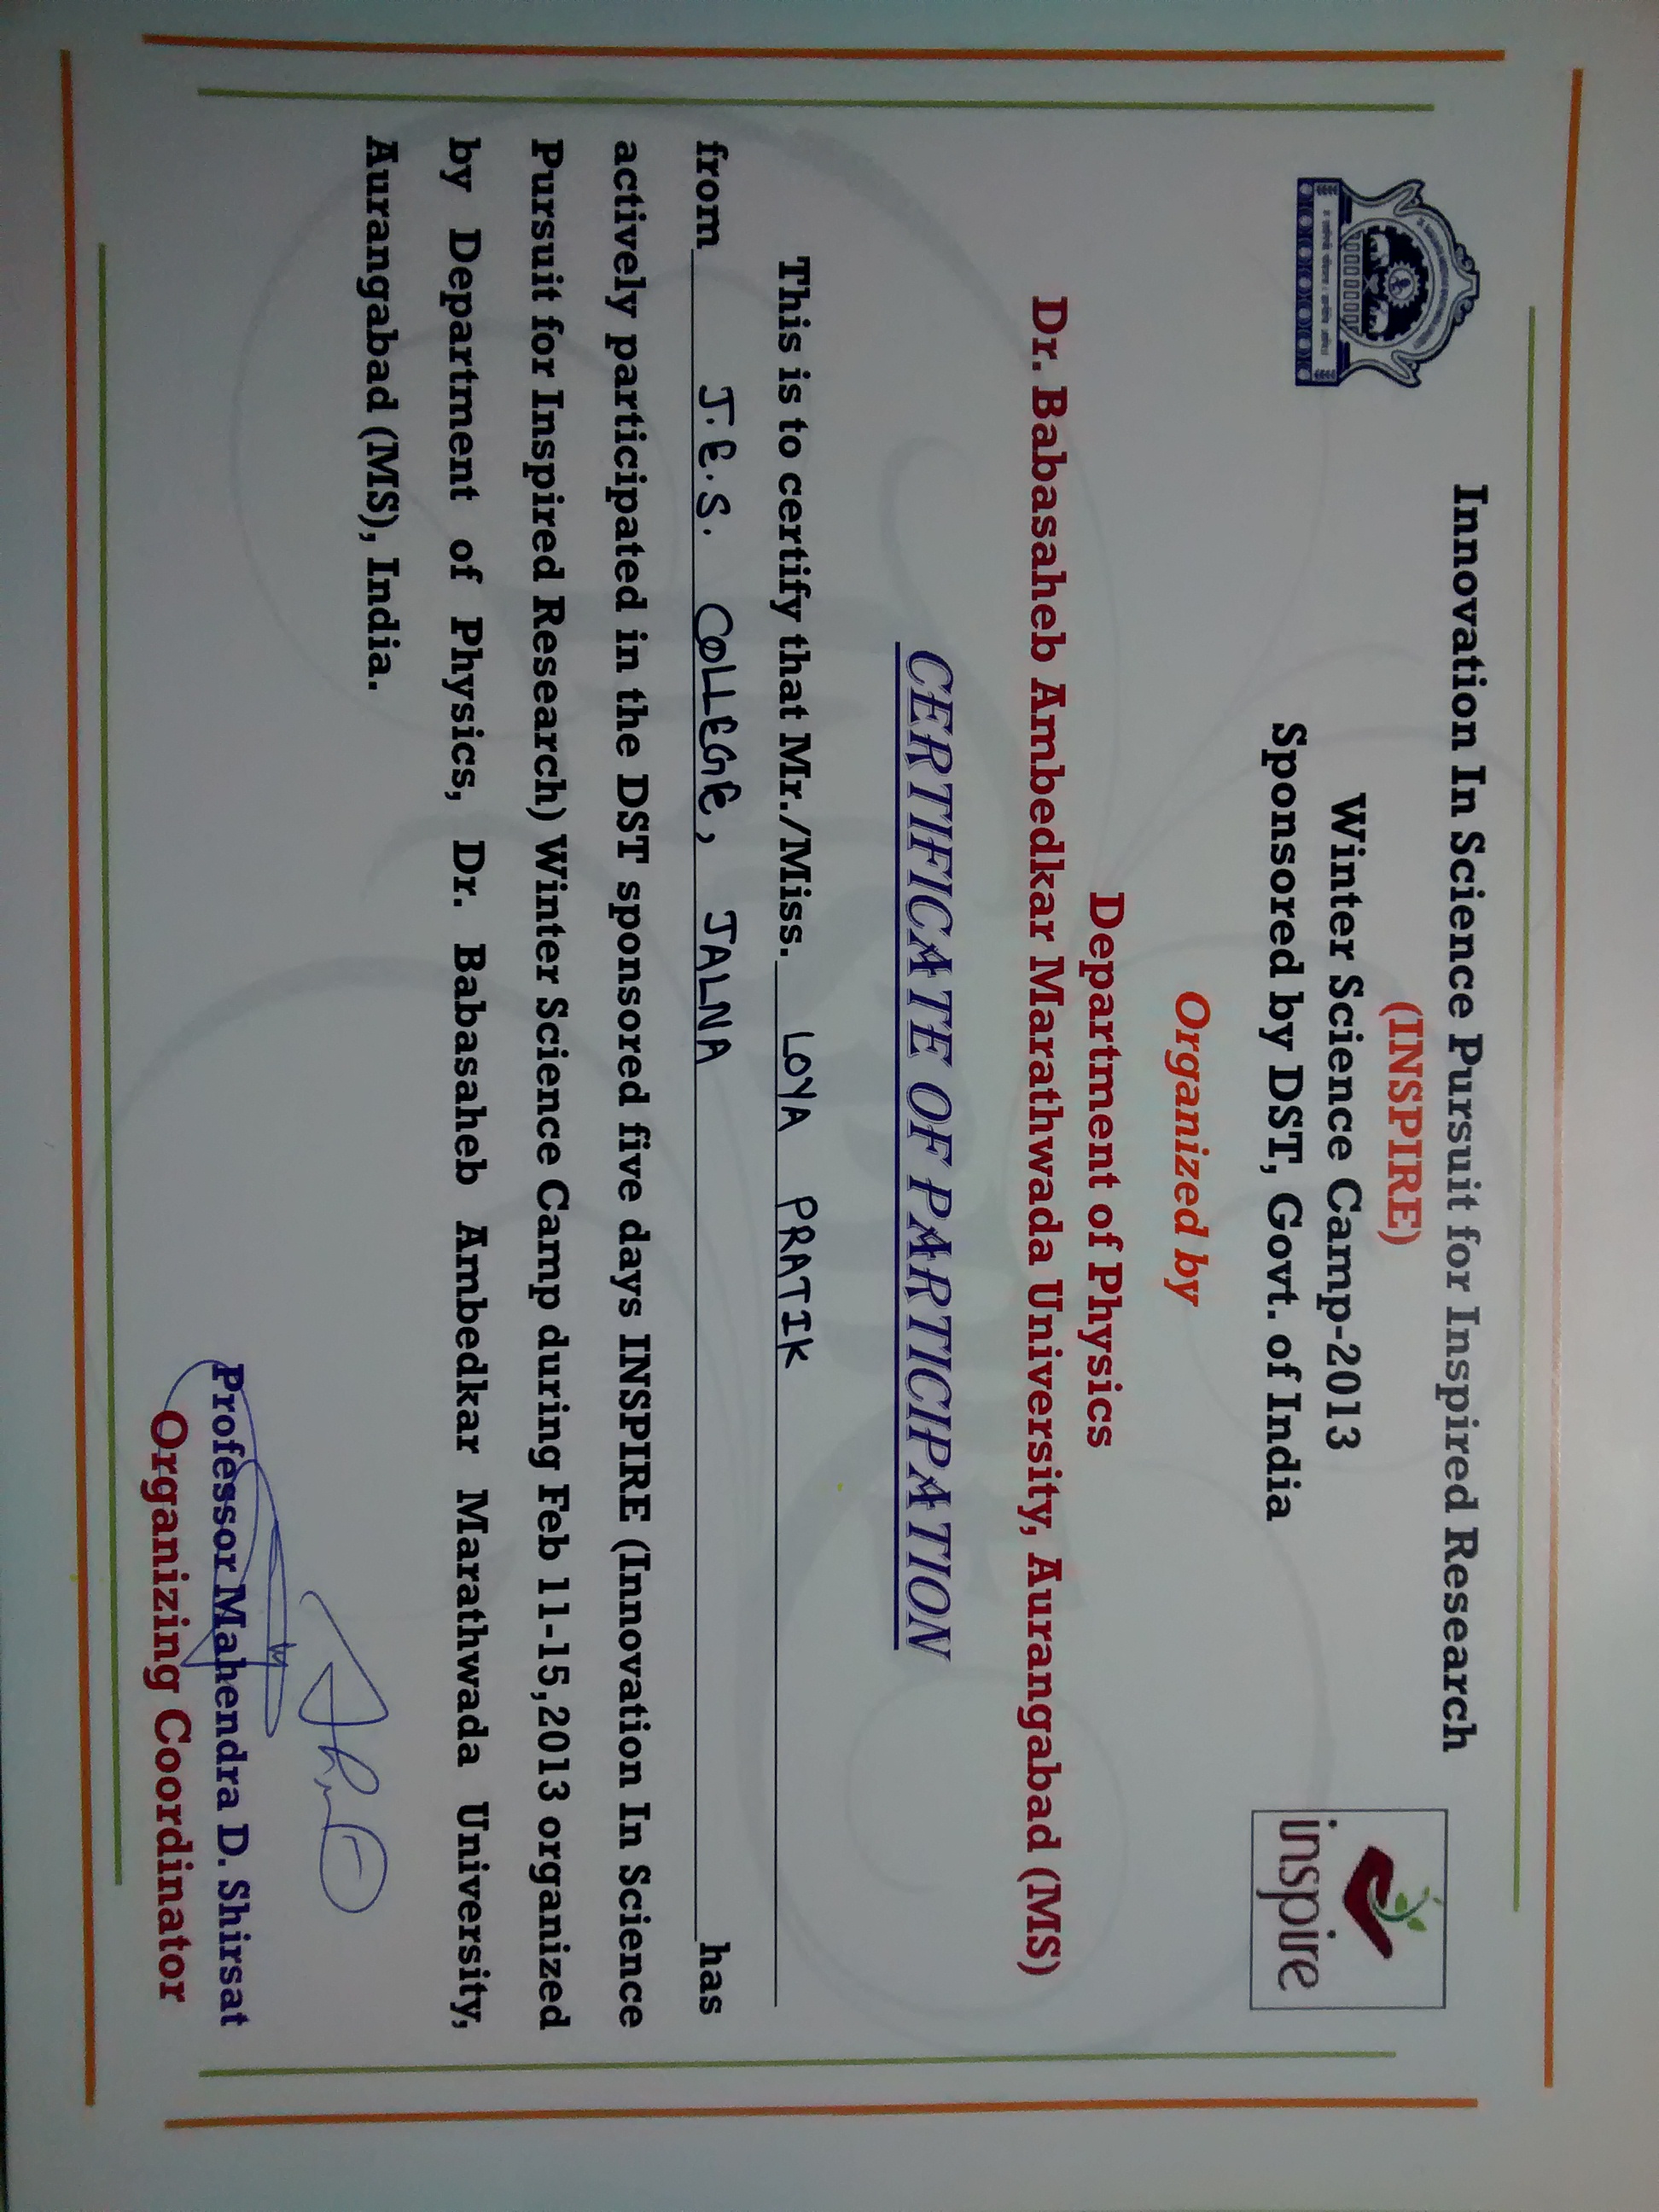 Innovation In Science Pursuit for Inspired Research
(INSPIRE)
Winter Science Camp-2013
Sponsored by DST, Govt. of India
inspire
Organized by
Department of Physics
Dr. Babasaheb Ambedkar Marathwada University, Aurangabad (MS)
CERTIFICATE OF PARTICIPATION
This is to certify that Mr./Miss. LOYA PRATIK
from J.E.S. COLLEGE, JALNA has
actively participated in the DST sponsored five days INSPIRE (Innovation In Science
Pursuit for Inspired Research) Winter Science Camp during Feb 11-15,2013 organized
by Department of Physics, Dr. Babasaheb Ambedkar Marathwada University,
Aurangabad (MS), India.
Professor Mahendra D. Shirsat
Organizing Coordinator
INSPIRE